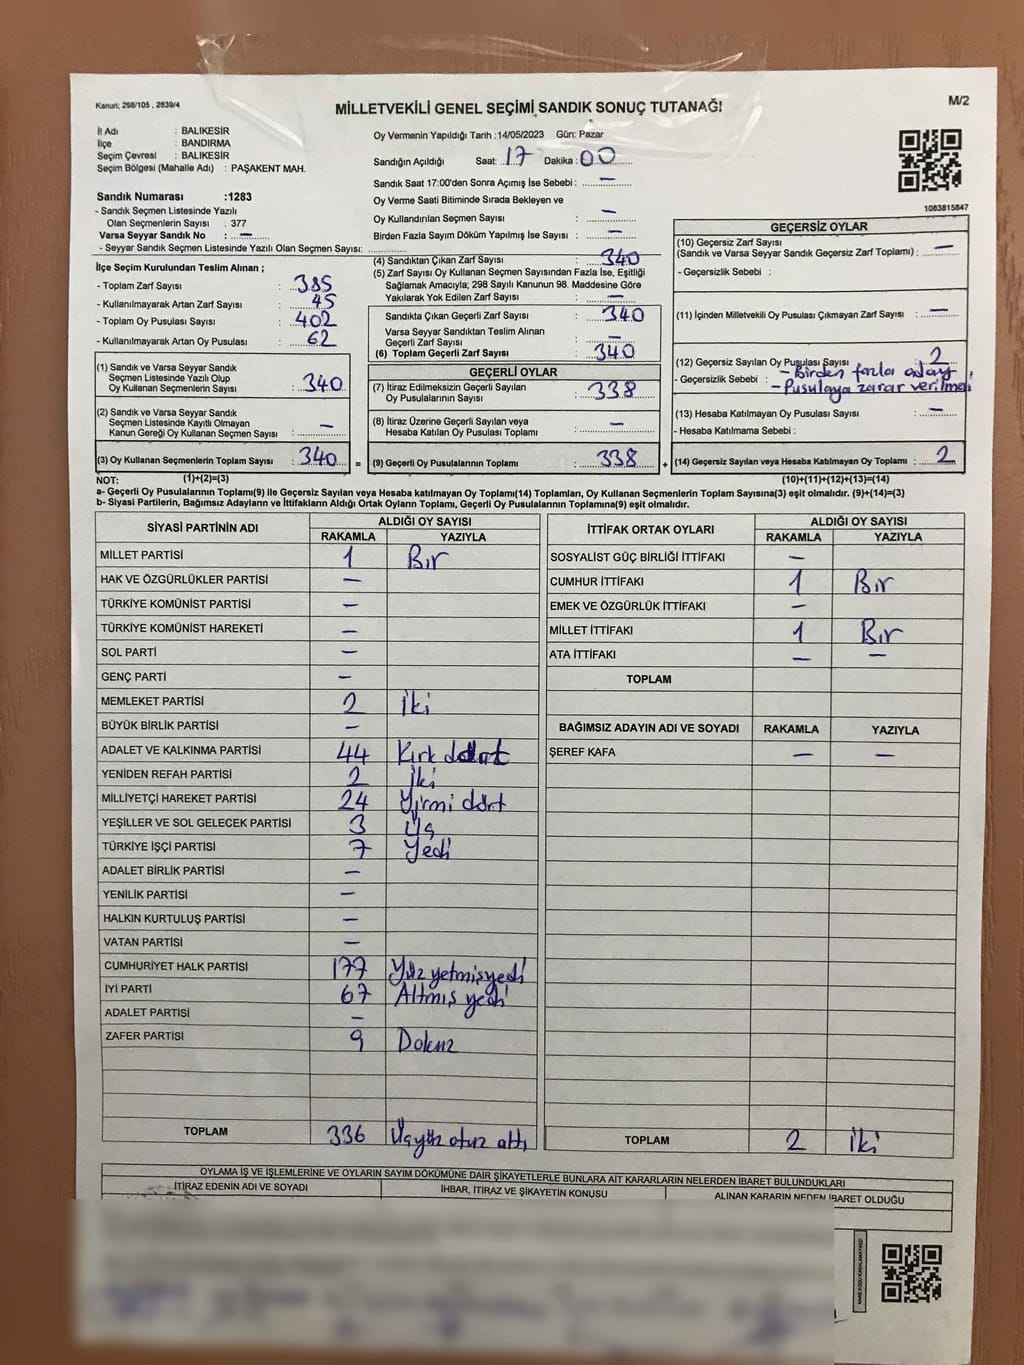 Kanun; 298/105 , 2839/4
MİLLETVEKİLİ GENEL SEÇİMİ SANDIK SONUÇ TUTANAĞI
M/2
İl Adı : BALIKESİR
İlçe : BANDIRMA
Seçim Çevresi : BALIKESİR
Seçim Bölgesi (Mahalle Adı) : PAŞAKENT MAH.
Sandık Numarası :1283
- Sandık Seçmen Listesinde Yazılı
Olan Seçmenlerin Sayısı : 377
Varsa Seyyar Sandık No : —
- Seyyar Sandık Seçmen Listesinde Yazılı Olan Seçmen Sayısı:
Oy Vermenin Yapıldığı Tarih :14/05/2023 Gün: Pazar
Sandığın Açıldığı Saat: 17 Dakika : 00
Sandık Saat 17:00'den Sonra Açımış İse Sebebi : —
Oy Verme Saati Bitiminde Sırada Bekleyen ve
Oy Kullandırılan Seçmen Sayısı : —
Birden Fazla Sayım Döküm Yapılmış İse Sayısı : —
1083815847
İlçe Seçim Kurulundan Teslim Alınan ;
- Toplam Zarf Sayısı : 385
- Kullanılmayarak Artan Zarf Sayısı : 45
- Toplam Oy Pusulası Sayısı : 402
- Kullanılmayarak Artan Oy Pusulası : 62
(1) Sandık ve Varsa Seyyar Sandık
Seçmen Listesinde Yazılı Olup
Oy Kullanan Seçmenlerin Sayısı : 340
(2) Sandık ve Varsa Seyyar Sandık
Seçmen Listesinde Kayıtlı Olmayan
Kanun Gereği Oy Kullanan Seçmen Sayısı : —
(3) Oy Kullanan Seçmenlerin Toplam Sayısı : 340 =
(4) Sandıktan Çıkan Zarf Sayısı : 340
(5) Zarf Sayısı Oy Kullanan Seçmen Sayısından Fazla İse, Eşitliği
Sağlamak Amacıyla; 298 Sayılı Kanunun 98. Maddesine Göre
Yakılarak Yok Edilen Zarf Sayısı : —
Sandıkta Çıkan Geçerli Zarf Sayısı : 340
Varsa Seyyar Sandıktan Teslim Alınan
Geçerli Zarf Sayısı : —
(6) Toplam Geçerli Zarf Sayısı : 340
GEÇERLİ OYLAR
(7) İtiraz Edilmeksizin Geçerli Sayılan
Oy Pusulalarının Sayısı : 338
(8) İtiraz Üzerine Geçerli Sayılan veya
Hesaba Katılan Oy Pusulası Toplamı : —
(9) Geçerli Oy Pusulalarının Toplamı : 338 +
GEÇERSİZ OYLAR
(10) Geçersiz Zarf Sayısı
(Sandık ve Varsa Seyyar Sandık Geçersiz Zarf Toplamı) : —
- Geçersizlik Sebebi :
(11) İçinden Milletvekili Oy Pusulası Çıkmayan Zarf Sayısı : —
(12) Geçersiz Sayılan Oy Pusulası Sayısı : 2
- Geçersizlik Sebebi : - Birden fazla aday
- Pusulaya zarar verilmesi
(13) Hesaba Katılmayan Oy Pusulası Sayısı : —
- Hesaba Katılmama Sebebi :
(14) Geçersiz Sayılan veya Hesaba Katılmayan Oy Toplamı : 2
NOT: (1)+(2)=(3) (10)+(11)+(12)+(13)=(14)
a- Geçerli Oy Pusulalarının Toplamı(9) ile Geçersiz Sayılan veya Hesaba katılmayan Oy Toplamı(14) Toplamları, Oy Kullanan Seçmenlerin Toplam Sayısına(3) eşit olmalıdır. (9)+(14)=(3)
b- Siyasi Partilerin, Bağımsız Adayların ve İttifakların Aldığı Ortak Oyların Toplamı, Geçerli Oy Pusulalarının Toplamına(9) eşit olmalıdır.
SİYASİ PARTİNİN ADI ALDIĞI OY SAYISI
RAKAMLA YAZIYLA
MİLLET PARTİSİ 1 Bir
HAK VE ÖZGÜRLÜKLER PARTİSİ —
TÜRKİYE KOMÜNİST PARTİSİ —
TÜRKİYE KOMÜNİST HAREKETİ —
SOL PARTİ —
GENÇ PARTİ —
MEMLEKET PARTİSİ 2 İki
BÜYÜK BİRLİK PARTİSİ —
ADALET VE KALKINMA PARTİSİ 44 Kırk dört
YENİDEN REFAH PARTİSİ 2 İki
MİLLİYETÇİ HAREKET PARTİSİ 24 Yirmi dört
YEŞİLLER VE SOL GELECEK PARTİSİ 3 Üç
TÜRKİYE İŞÇİ PARTİSİ 7 Yedi
ADALET BİRLİK PARTİSİ —
YENİLİK PARTİSİ —
HALKIN KURTULUŞ PARTİSİ —
VATAN PARTİSİ —
CUMHURİYET HALK PARTİSİ 177 Yüz yetmişyedi
İYİ PARTİ 67 Altmış yedi
ADALET PARTİSİ —
ZAFER PARTİSİ 9 Dokuz
TOPLAM 336 Üçyüz otuz altı
İTTİFAK ORTAK OYLARI ALDIĞI OY SAYISI
RAKAMLA YAZIYLA
SOSYALİST GÜÇ BİRLİĞİ İTTİFAKI —
CUMHUR İTTİFAKI 1 Bir
EMEK VE ÖZGÜRLÜK İTTİFAKI —
MİLLET İTTİFAKI 1 Bir
ATA İTTİFAKI — —
TOPLAM
BAĞIMSIZ ADAYIN ADI VE SOYADI RAKAMLA YAZIYLA
ŞEREF KAFA — —
TOPLAM 2 İki
OYLAMA İŞ VE İŞLEMLERİNE VE OYLARIN SAYIM DÖKÜMÜNE DAİR ŞİKAYETLERLE BUNLARA AİT KARARLARIN NELERDEN İBARET BULUNDUKLARI
İTİRAZ EDENİN ADI VE SOYADI İHBAR, İTİRAZ VE ŞİKAYETİN KONUSU ALINAN KARARIN NEDEN İBARET OLDUĞU